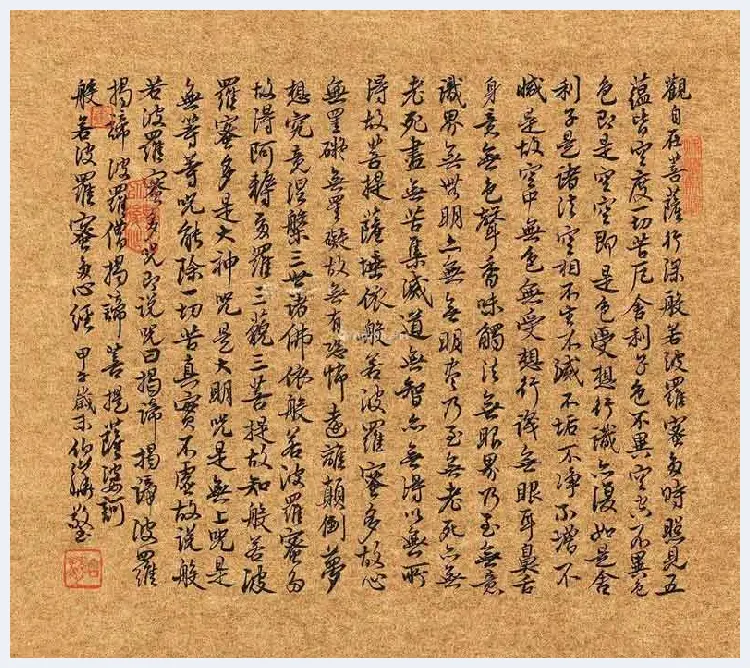 觀自在菩薩行深般若波羅蜜多時照見五
蘊皆空度一切苦厄舍利子色不異空空不異色
色即是空空即是色受想行識亦復如是舍
利子是諸法空相不生不滅不垢不淨不增不
滅是故空中無色無受想行識無眼耳鼻舌
身意無色聲香味觸法無眼界乃至無意
識界無無明亦無無明盡乃至無老死亦無
老死盡無苦集滅道無智亦無得以無所
得故菩提薩埵依般若波羅蜜多故心
無罣礙無罣礙故無有恐怖遠離顛倒夢
想究竟涅槃三世諸佛依般若波羅蜜多
故得阿耨多羅三藐三菩提故知般若波
羅蜜多是大神咒是大明咒是無上咒是
無等等咒能除一切苦真實不虛故說般
若波羅蜜多咒即說咒曰揭諦揭諦波羅
揭諦波羅僧揭諦菩提薩婆訶
般若波羅蜜多心經 甲午歲末